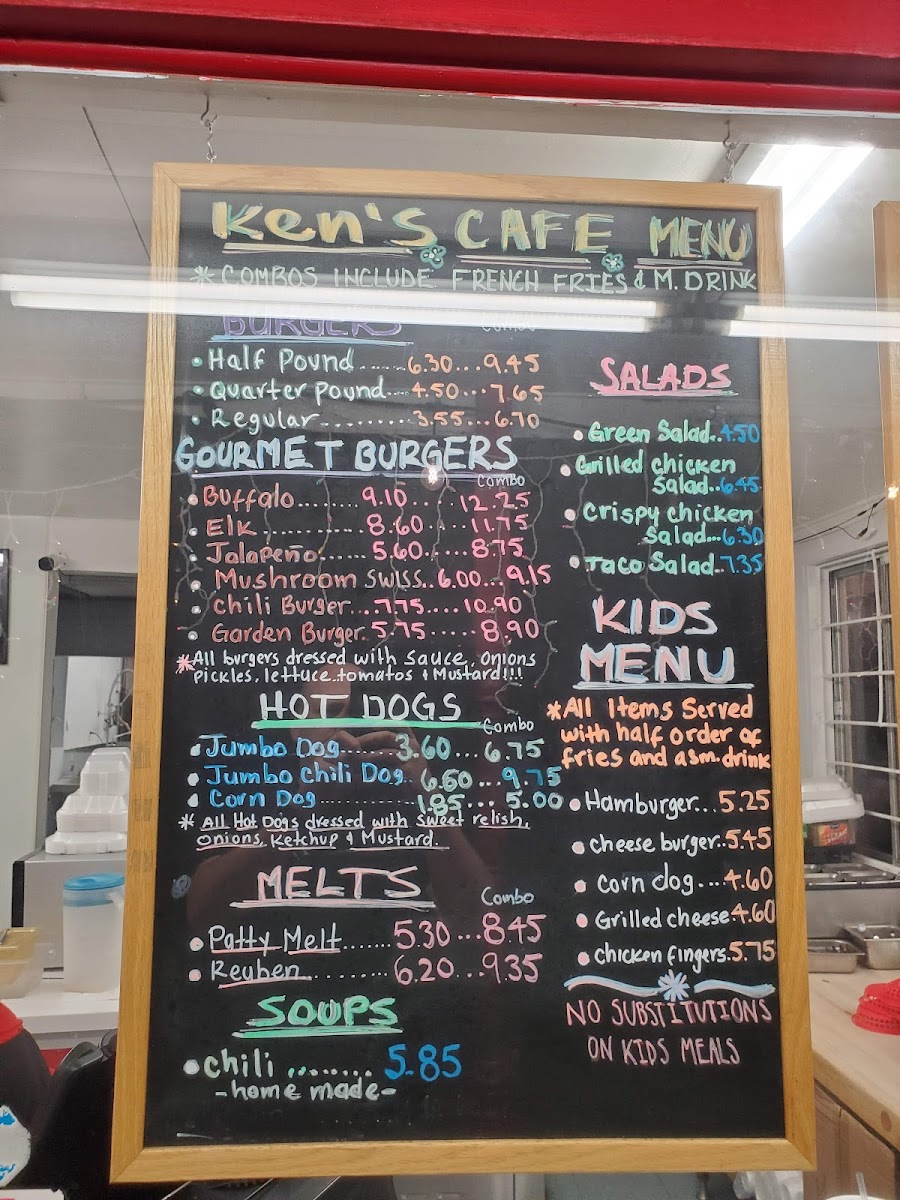 Ken's CAFE MENU
* COMBOS INCLUDE FRENCH FRIES & M. DRINK
BURGERS Combo
• Half Pound ...... 6.30 ... 9.45
• Quarter Pound... 4.50 ... 7.65
• Regular ......... 3.55 ... 6.70
GOURMET BURGERS
Combo
• Buffalo ...... 9.10 .... 12.25
• Elk ........... 8.60 .... 11.75
• Jalapeño ....... 5.60 ..... 8.75
• Mushroom swiss.. 6.00 ... 9.15
• Chili Burger... 7.75 .... 10.90
• Garden Burger. 5.75 ..... 8.90
*All burgers dressed with sauce, onions
pickles, lettuce tomatos & Mustard!!!
HOT DOGS
Combo
• Jumbo Dog........ 3.60 ... 6.75
• Jumbo Chili Dog.. 6.60 ... 9.75
• Corn Dog ............. 1.85 ... 5.00
* All Hot Dogs dressed with sweet relish,
onions, Ketchup & Mustard.
MELTS
Combo
• Patty Melt....... 5.30 ... 8.45
• Reuben.......... 6.20 ... 9.35
SOUPS
• chili ........ 5.85
-home made-
SALADS
• Green Salad.. 4.50
• Grilled chicken
Salad.. 6.45
• Crispy chicken
Salad... 6.30
• Taco Salad.. 7.35
KIDS
MENU
*All Items Served
with half order of
fries and a sm. drink
• Hamburger... 5.25
• cheese burger.. 5.45
• corn dog.... 4.60
• Grilled cheese 4.60
• chicken fingers. 5.75
NO SUBSTITUTIONS
ON KIDS MEALS